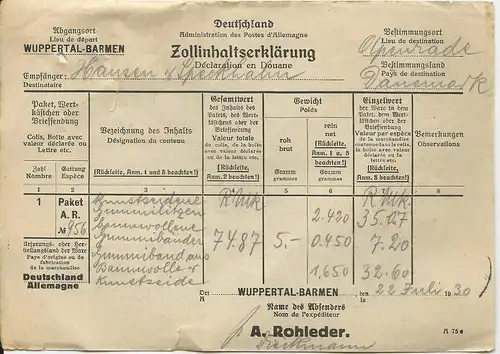 Deutschland
Administration des Postes d'Allemagne
Zollinhaltserklärung
Déclaration en Douane
Abgangsort
Lieu de départ
WUPPERTAL-BARMEN
Bestimmungsort
Lieu de destination
Apenrade
Bestimmungsland
Pays de destination
Dänemark
Empfänger:
Destinataire
Hansen & Speckhahn
Paket, Wert-
kästchen oder
Briefsendung
Colis, Boîte avec
valeur déclarée ou
Lettre etc.
Zahl
Nombre
Gattung
Espèce
Bezeichnung des Inhalts
Désignation du contenu
(Rückseite, Anm. 1 und 5 beachten!)
Gesamtwert
des Inhalts des
Pakets, des Wert-
kästchens oder
der Briefsendung
Valeur totale
du colis, de la boîte
avec valeur déclarée ou
de la lettre etc.
(Rückseite,
Anm. 2 beachten!)
Gewicht
Poids
roh
brut
rein
net
(Rückseite,
Anm. 1 und 5
beachten!)
Gramm
grammes
Gramm
grammes
Einzelwert
der Ware in dem
Paket, dem Wert-
kästchen oder der
Briefsendung
Valeur par espèce
de marchandise contenue
dans le colis, la boîte avec
valeur déclarée ou
la lettre etc.
(Rückseite,
Anm. 3 beachten!)
Bemerkungen
Observations
1 2 3 4 5 6 7 8
1 Paket
A. R.
№ 956
Gummilitzen
Gummibänder
Baumwolle &
Kunstseide
RMk
74.87
5.-
2.420
0.450
1,650
RMk.
35.07
7.20
32.60
Ursprungs- oder Her-
stellungsland der Ware
Pays d'origine ou de
fabrication
de la marchandise
Deutschland
Allemagne
Ort
A
WUPPERTAL-BARMEN
den
le
22 Juli 1930
Name des Absenders
Nom de l'expéditeur
A. Rohleder.
A 75 a